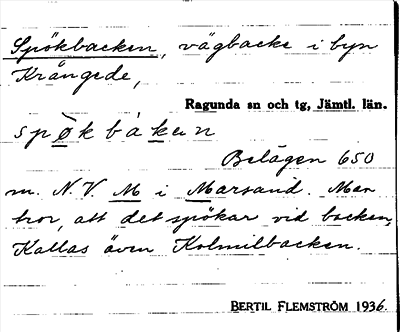 Spökbacken, vägbacke i byn
Krångede,
Ragunda sn och tg, Jämtl. län.
spø̀kbàkɐn
Belägen 650
m. N.V. M i Marsand. Man
tror, att det spökar vid backen,
Kallas även Kolmilbacken.
BERTIL FLEMSTRÖM 1936.